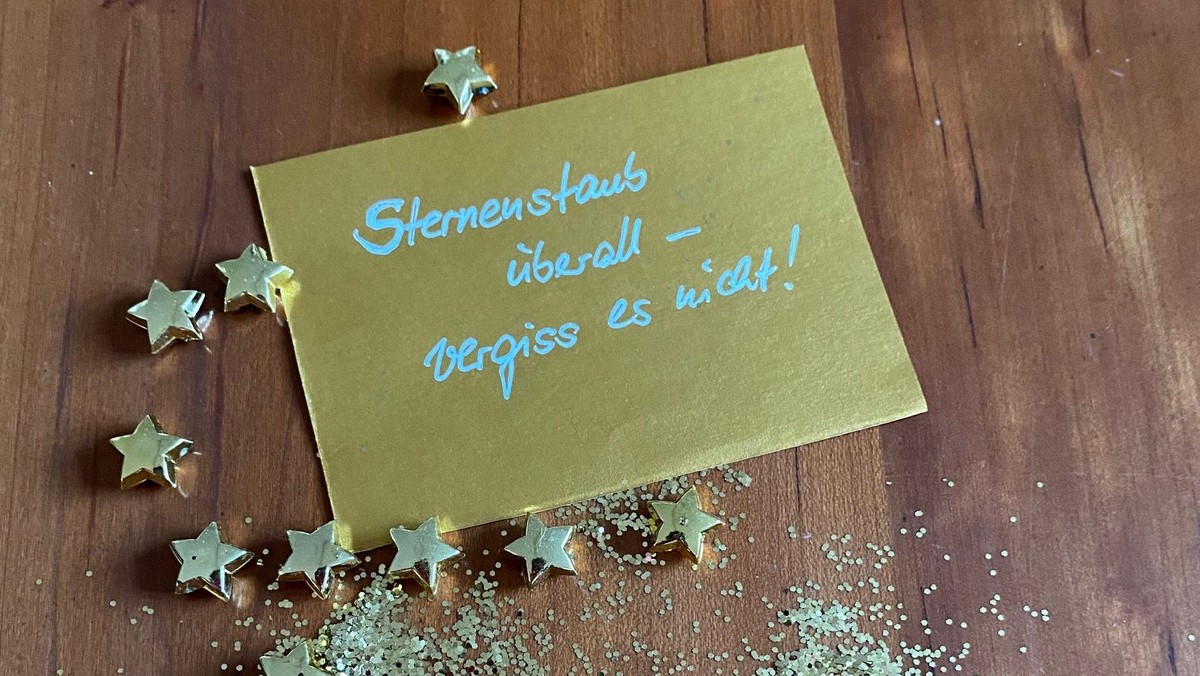 Sternenstaub
überall –
vergiss es nicht!